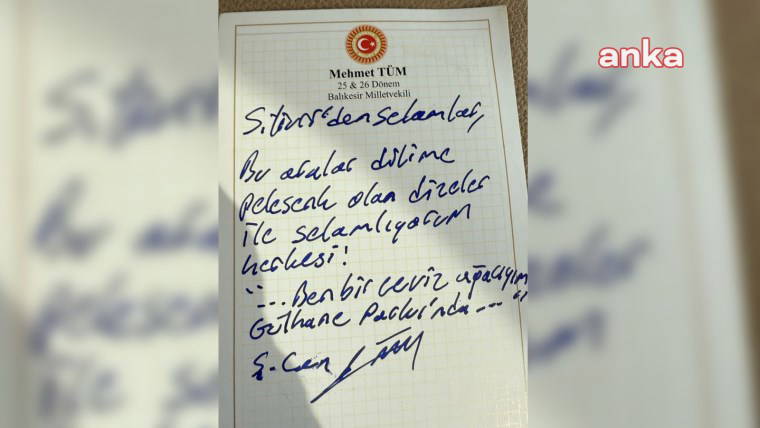 anka
Mehmet TÜM
25 & 26 Dönem
Balıkesir Milletvekili
Silivri'den selamlar,
Bu aralar dilime
pelesenk olan dizeler
ile selamlıyorum
herkesi!
"... Ben bir ceviz ağacıyım
Gülhane Parkı'nda ..."
Ş. Can